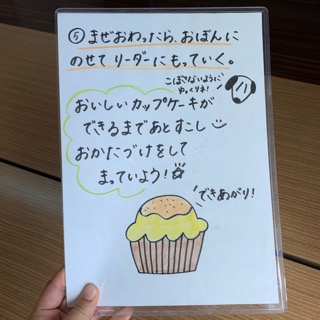 ⑤ まぜおわったら、おぼんに
のせて リーダーにもっていく。
こぼさないように
ゆっくりネ!
おいしいカップケーキが
できるまであとすこし
おかたづけをして
まっていよう!
できあがり!